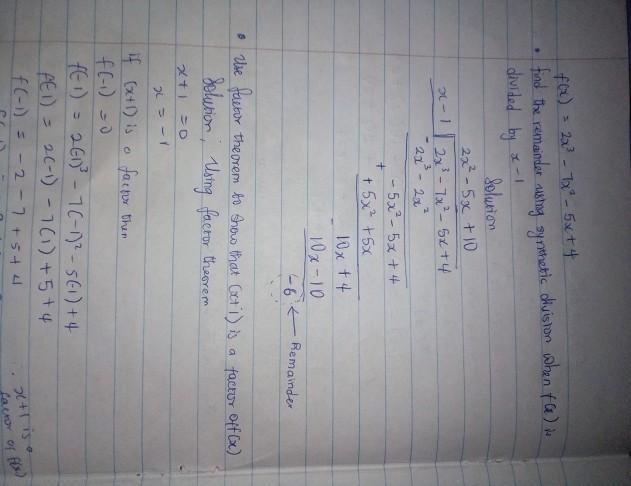 f(x) = 2x³ - 7x² - 5x + 4
• find the remainder using synthetic division when f(x) is
divided by x - 1
Solution
2x² - 5x + 10
x - 1 | 2x³ - 7x² - 5x + 4
- 2x³ - 2x²
- 5x² - 5x + 4
+
+ 5x² + 5x
10x + 4
-
10x - 10
-6 ← Remainder
• Use factor theorem to show that (x+1) is a factor of f(x)
Solution; Using factor theorem
x + 1 = 0
x = -1
if (x+1) is a factor then
f(-1) = 0
f(-1) = 2(-1)³ - 7(-1)² - 5(-1) + 4
f(-1) = 2(-1) - 7(1) + 5 + 4
f(-1) = -2 - 7 + 5 + 4
∴ x+1 is a
factor of f(x)